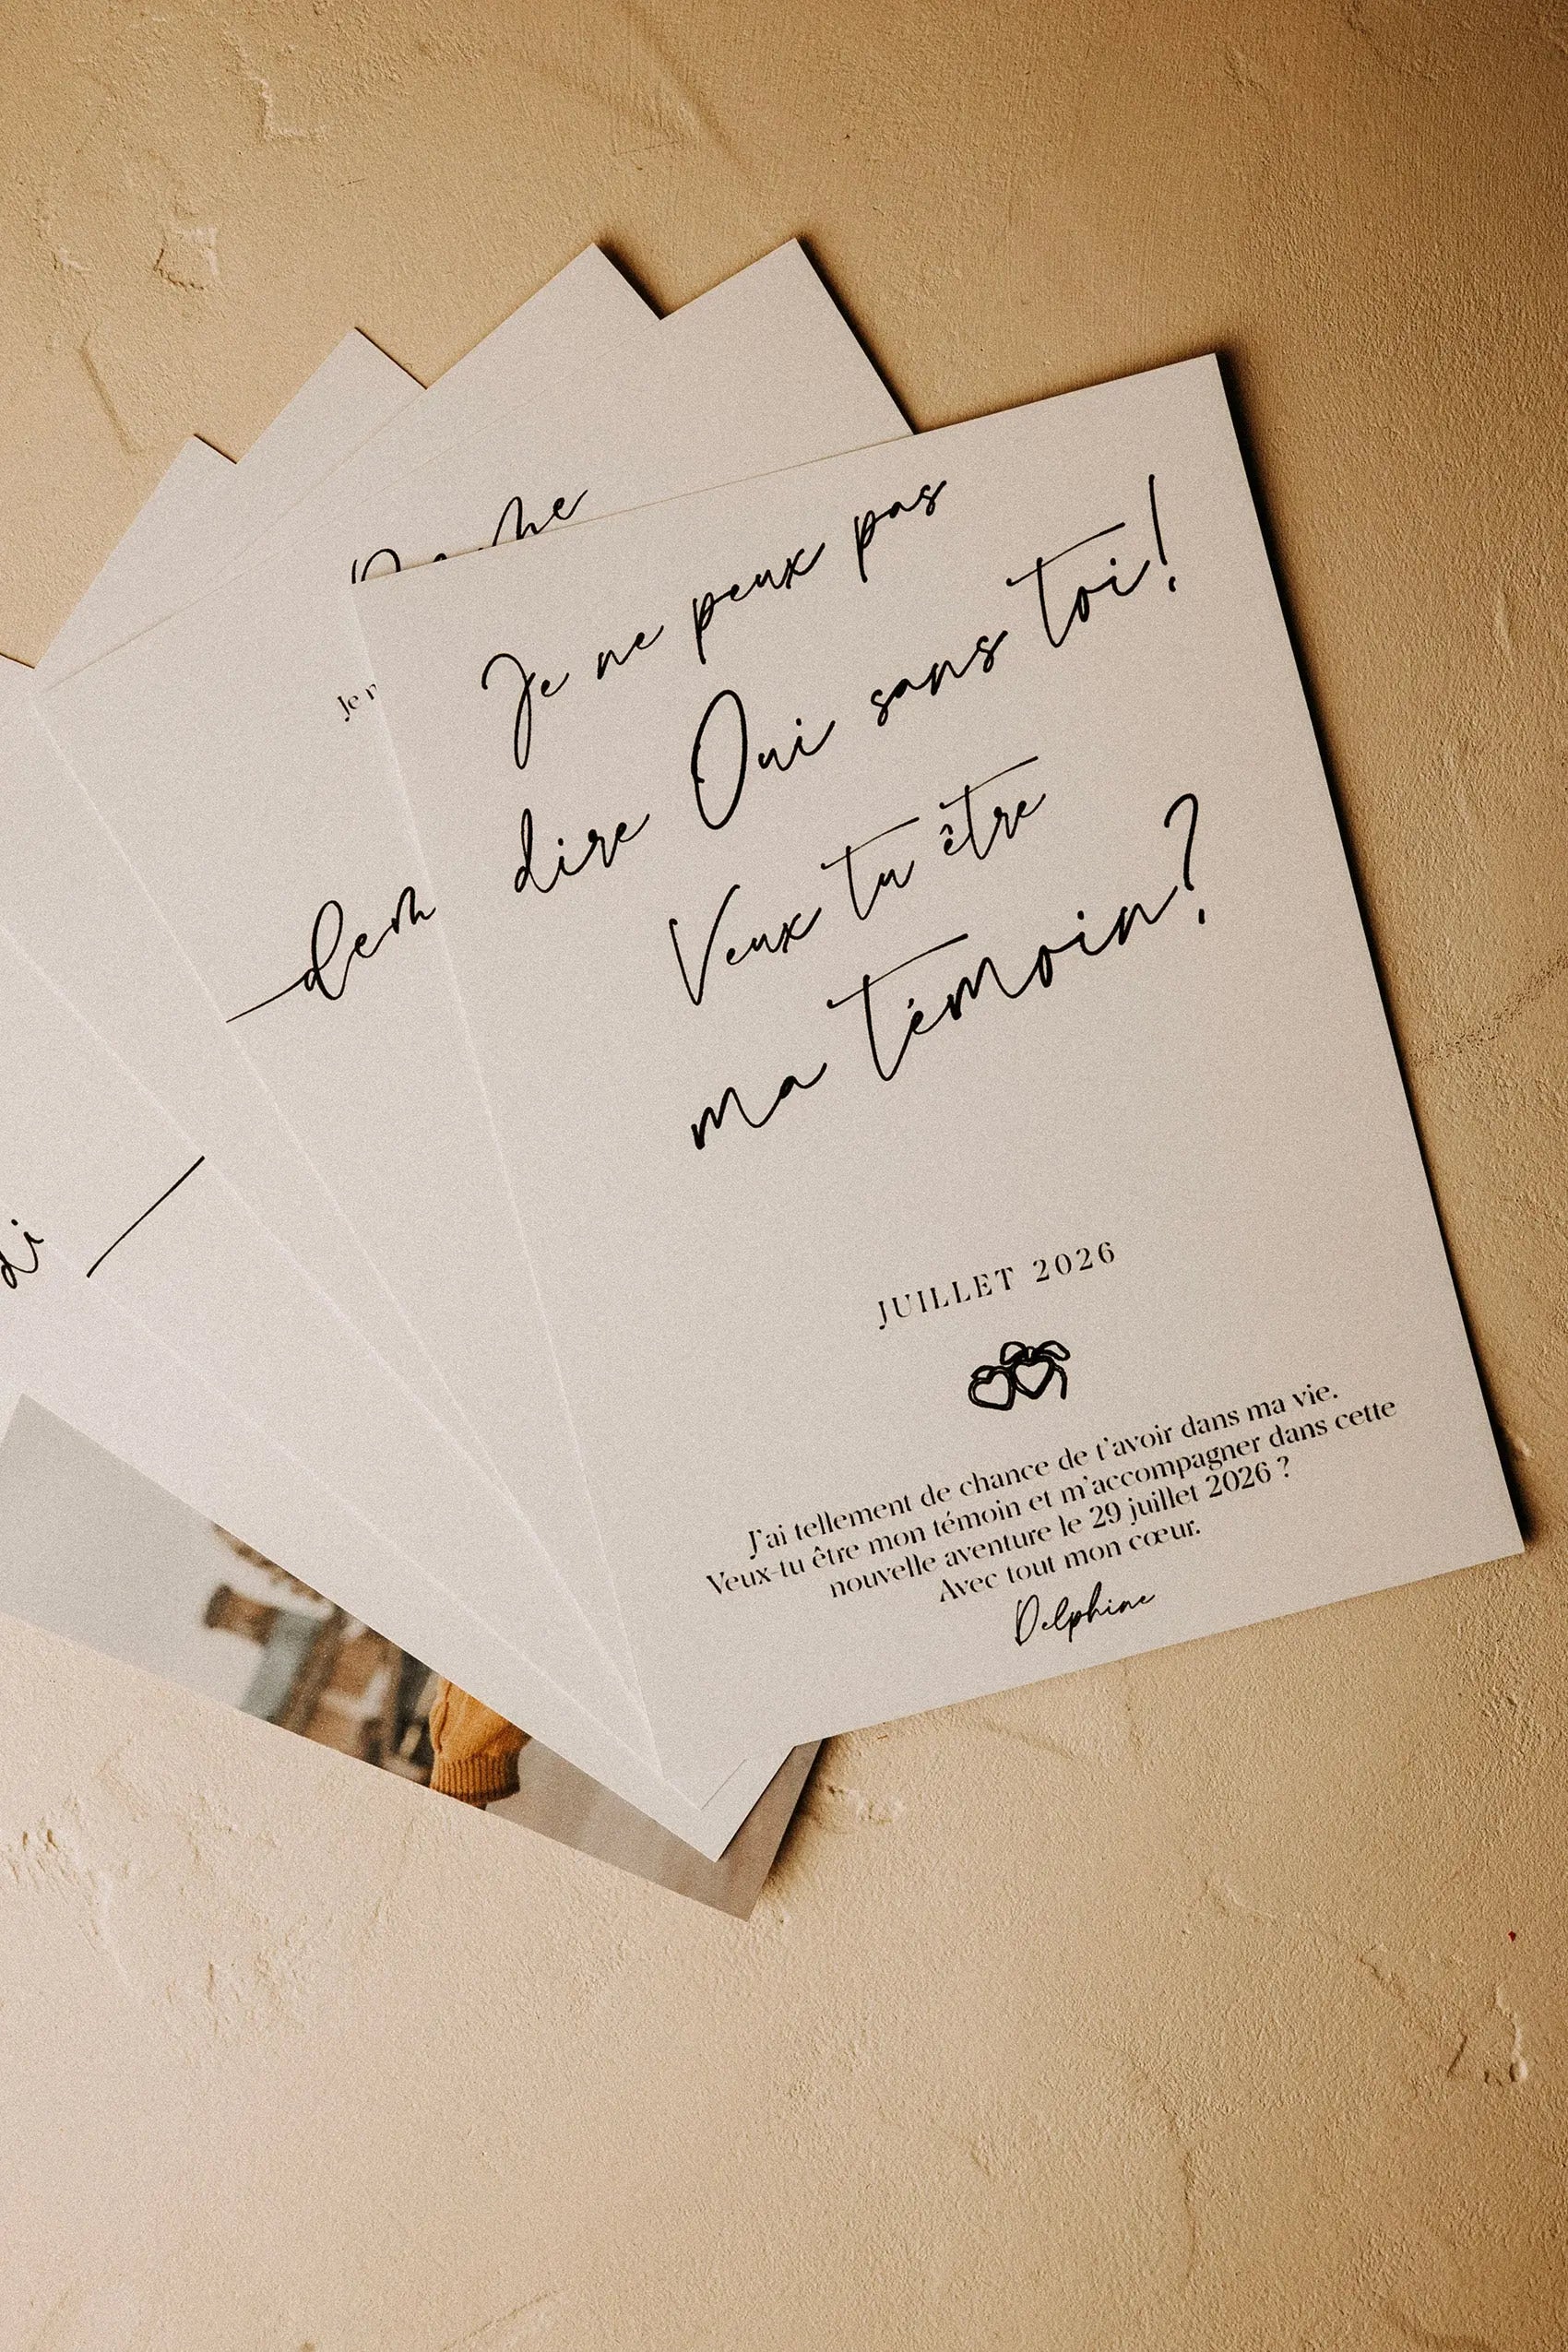 Je ne peux pas
dire Oui sans toi!
Veux tu être
ma témoin?
JUILLET 2026
J'ai tellement de chance de t'avoir dans ma vie.
Veux-tu être mon témoin et m'accompagner dans cette
nouvelle aventure le 29 juillet 2026 ?
Avec tout mon cœur.
Delphine
Je
dem
di